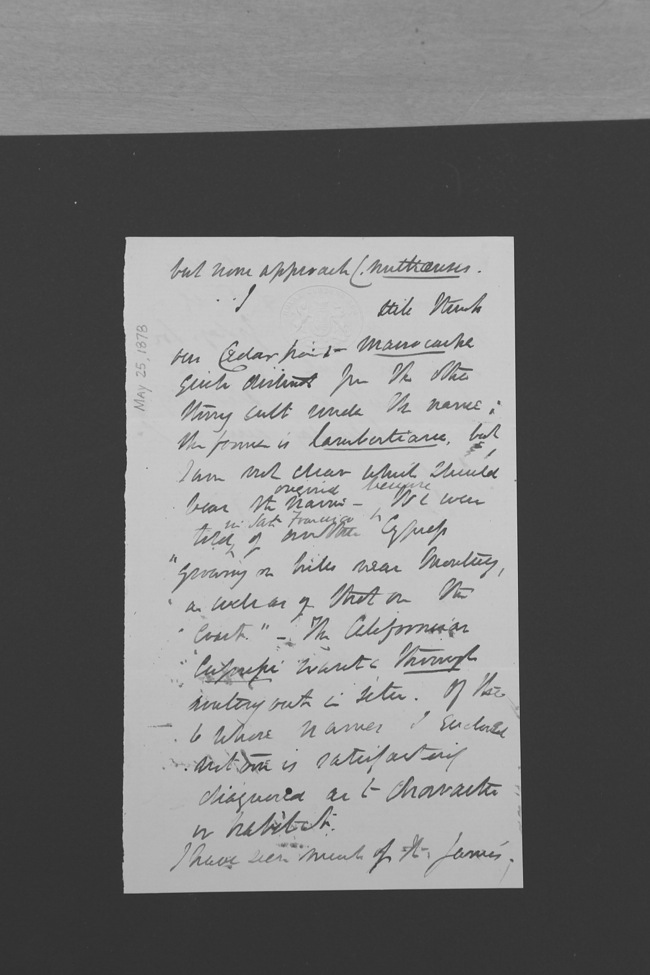 but none approach C. nutkaensis.
I still think
our Cedar point Macrocarpa
quite distinct from the other
thing cult under the name;
the former is lambertiana, but
I am not clear which should
bear the original name – We were
told in San Francisco of another Cypress
"growing on hills near Monterey,
"as well as of that on the
"Coast." – The Californian
Cupressi wants a thorough
working out in situ. Of the
6 whose names I enclosed
not one is satisfactorily
diagnosed as to character
or habitat.
I have seen much of St. James,
MAY 25, 1878